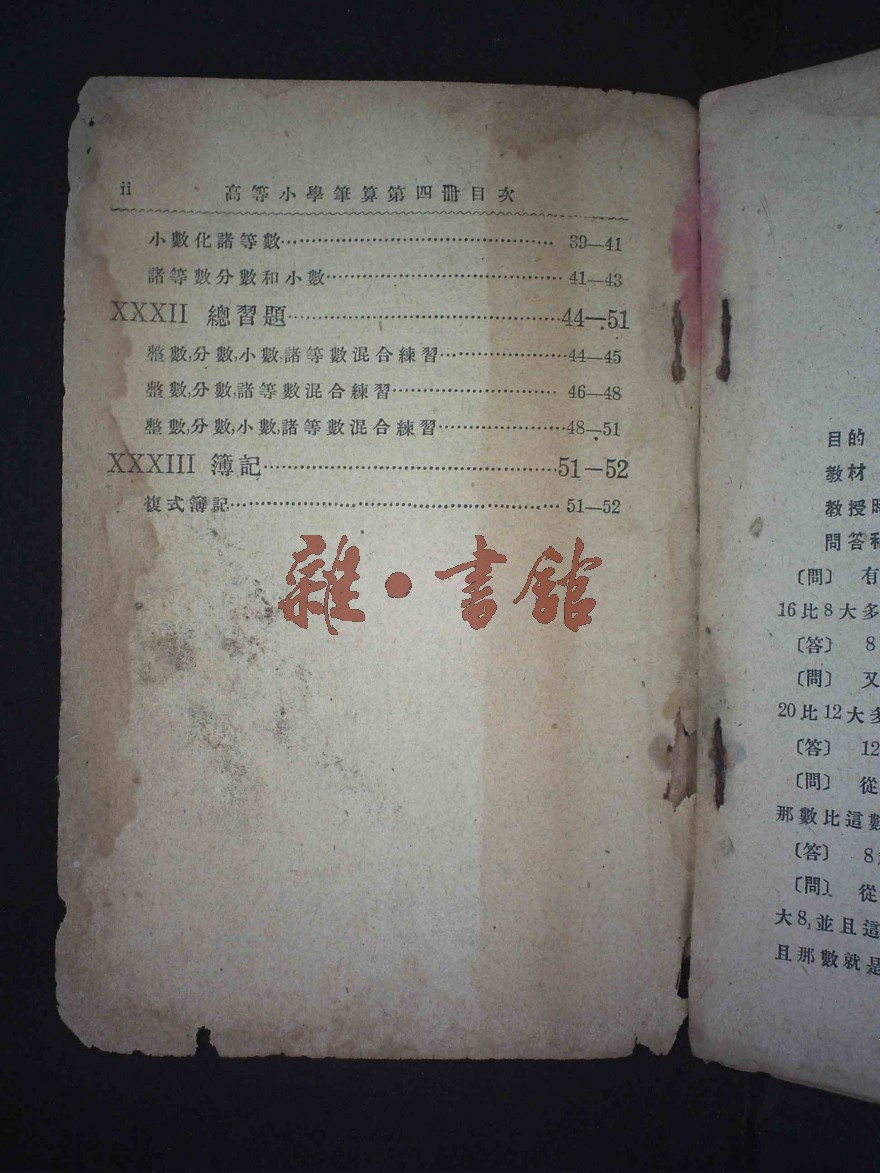 ii 高等小學筆算第四冊目次
小數化諸等數 39—41
諸等數分數和小數 41—43
XXXII 總習題 44—51
整數,分數,小數,諸等數混合練習 44—45
整數,分數,諸等數混合練習 46—48
整數,分數,小數,諸等數混合練習 48—51
XXXIII 簿記 51—52
複式簿記 51—52
雜·書館
目的
教材
教授
問答
〔問〕 有
16比8大多
〔答〕 8
〔問〕 又
20比12大多
〔答〕 12
〔問〕 從
那數比這數
〔答〕 8
〔問〕 從
大8,並且這
且那數就是